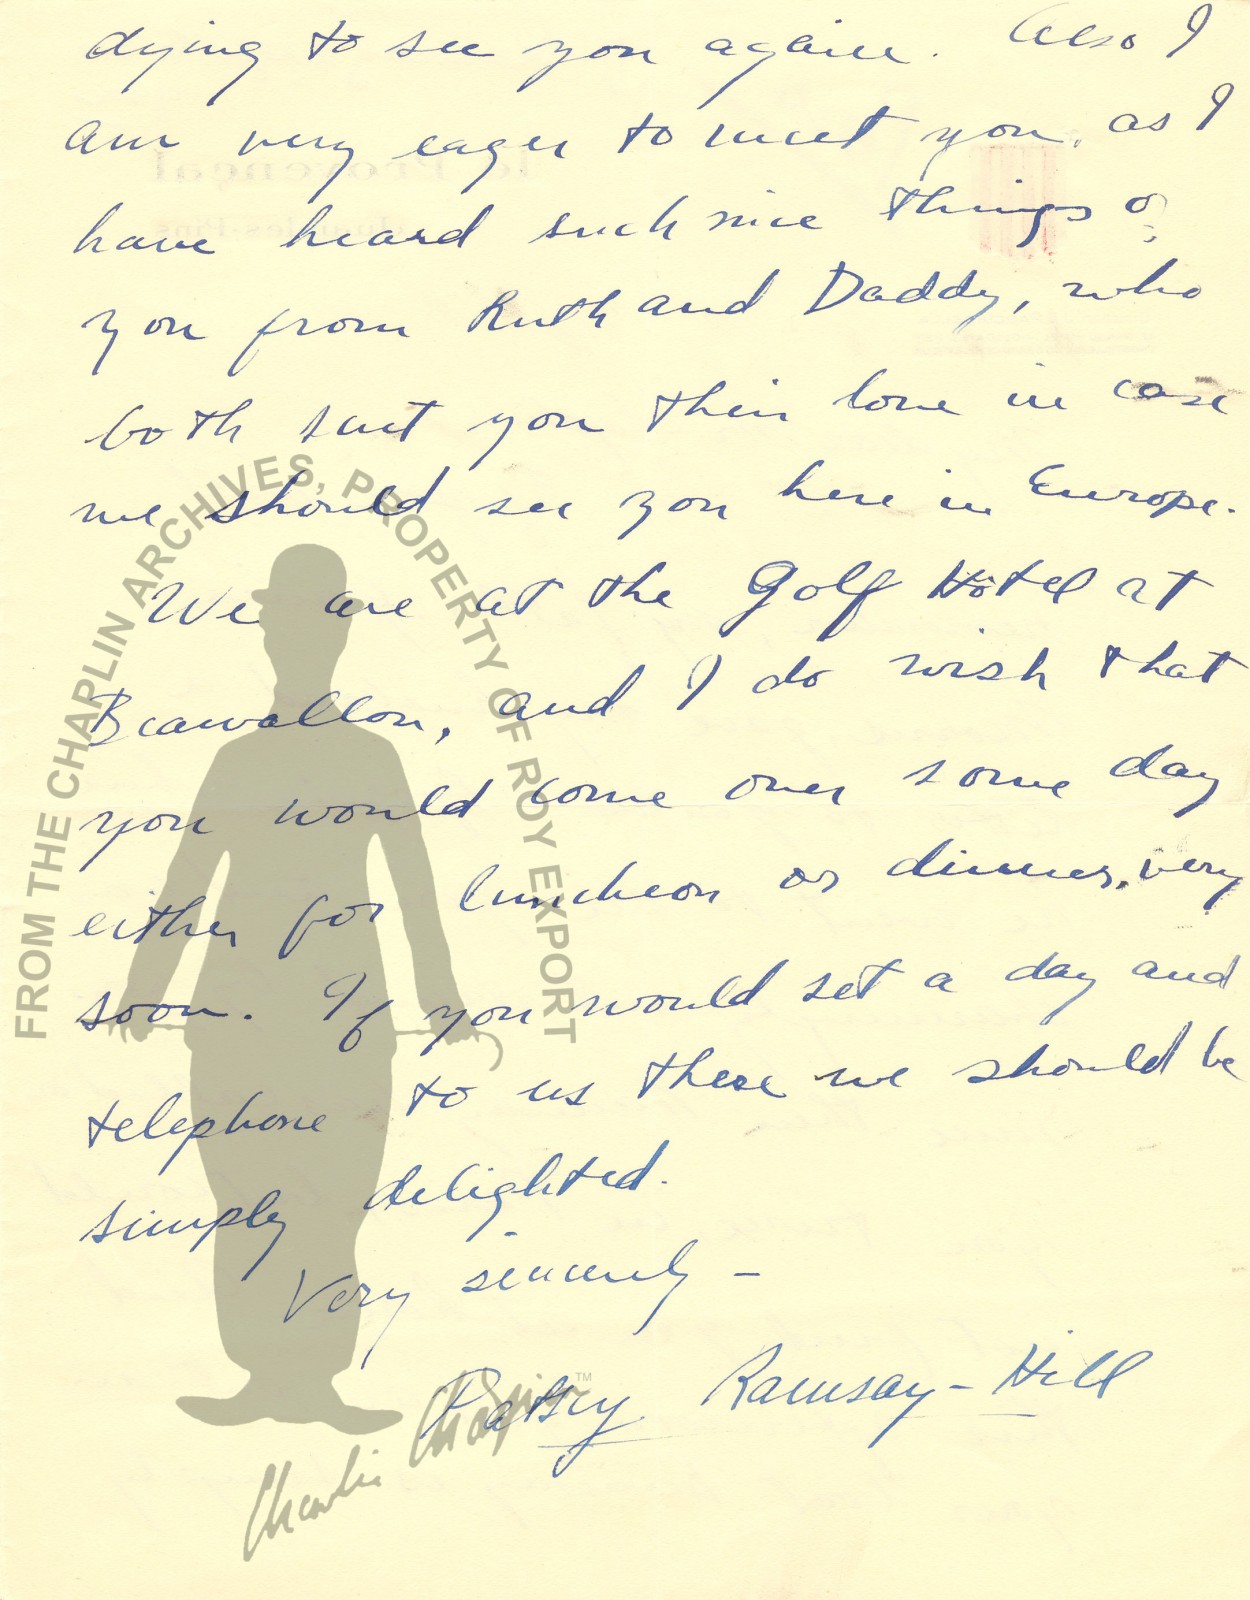 dying to see you again. Also I
am very eager to meet you, as I
have heard such nice things of
you from Ruth and Daddy, who
both sent you their love in case
we should see you here in Europe.
We are at the Golf Hotel at
Beauvallon, and I do wish that
you would come over some day
either for luncheon or dinner, very
soon. If you would set a day and
telephone to us there we should be
simply delighted.
Very sincerely –
Patsy Ramsay-Hill
FROM THE CHAPLIN ARCHIVES, PROPERTY OF ROY EXPORT
Charlie Chaplin™
le Provençal
Juan-les-Pins